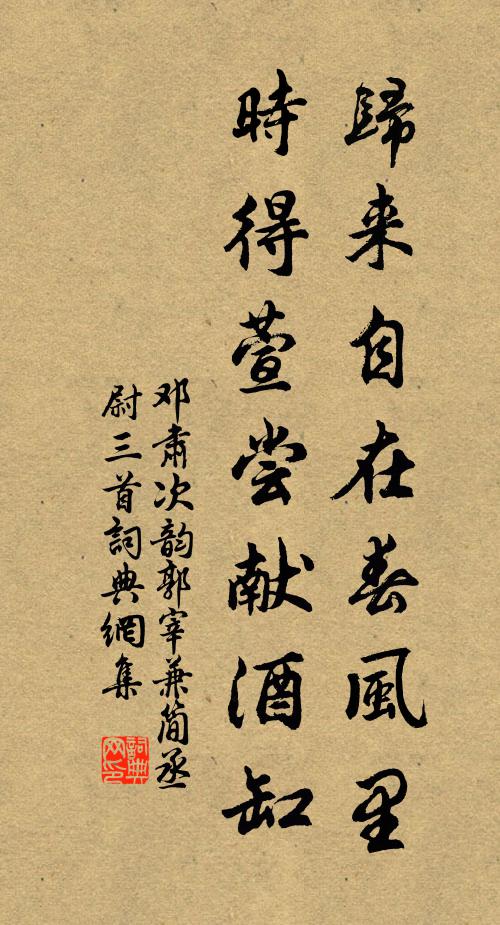 歸来自在春風里
時得萱尝献酒缸
邓肃次韵郭宰兼簡丞
尉三首詞典網集
詞典网印